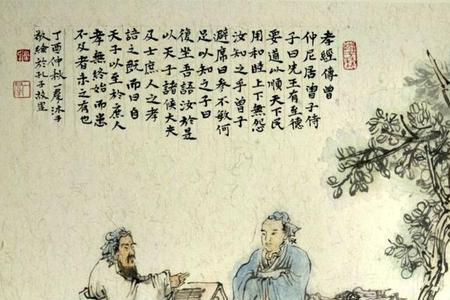 孝經傳曾
仲尼居曾子侍
子曰先王有至德
要道以順天下民
用和睦上下無怨
汝知之乎曾子
避席曰参不敏何
足以知之子曰
復坐吾語汝於是
以天子諸侯大夫
及士庶人之孝
語之既而曰自
天子以至於庶人
孝無終始而患
不及者未之有也
丁酉仲秋沐手
敬绘於孔子故里